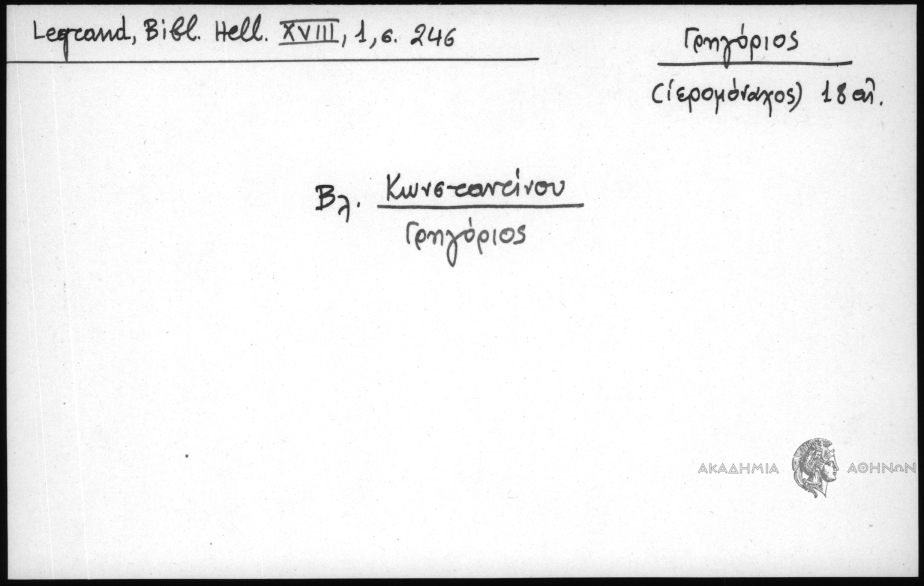 Legrand, Bibl. Hell. XVIII, 1, σ. 246
Γρηγόριος
(ἱερομόναχος) 18 αἰ.
Βλ. Κωνσταντίνου
Γρηγόριος
ΑΚΑΔΗΜΙΑ ΑΘΗΝΩΝ